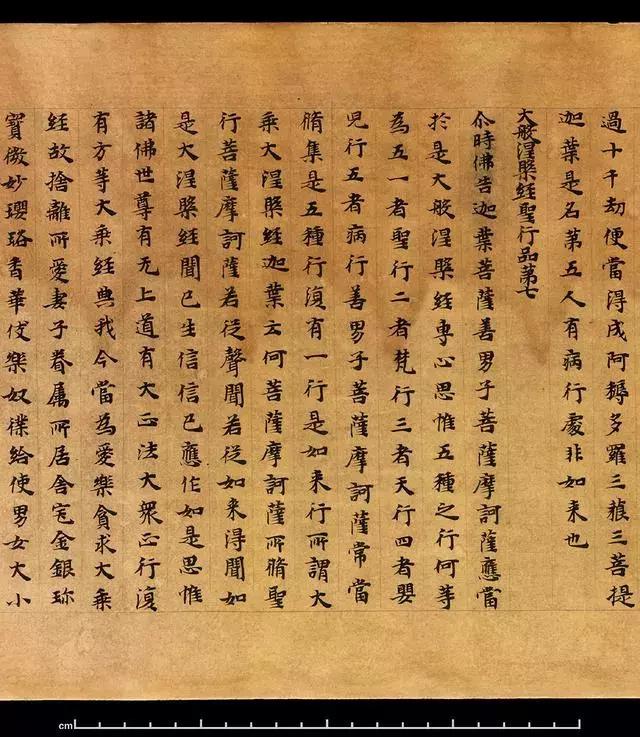 過十千劫便當得成阿耨多羅三藐三菩提
迦葉是名第五人有病行處非如来也
大般涅槃經聖行品第七
尒時佛告迦葉菩薩善男子菩薩摩訶薩應當
於是大般涅槃經專心思惟五種之行何等
為五一者聖行二者梵行三者天行四者嬰
兒行五者病行善男子菩薩摩訶薩常當
脩集是五種行復有一行是如来行所謂大
乘大涅槃經迦葉云何菩薩摩訶薩所脩聖
行菩薩摩訶薩若從聲聞若從如来得聞如
是大涅槃經聞已生信信已應作如是思惟
諸佛世尊有无上道有大正法大衆正行復
有方等大乘經典我今當為愛樂貪求大乘
經故捨離所愛妻子眷属所居舍宅金銀珎
寶微妙瓔珞香華伎樂奴僕給使男女大小
cm